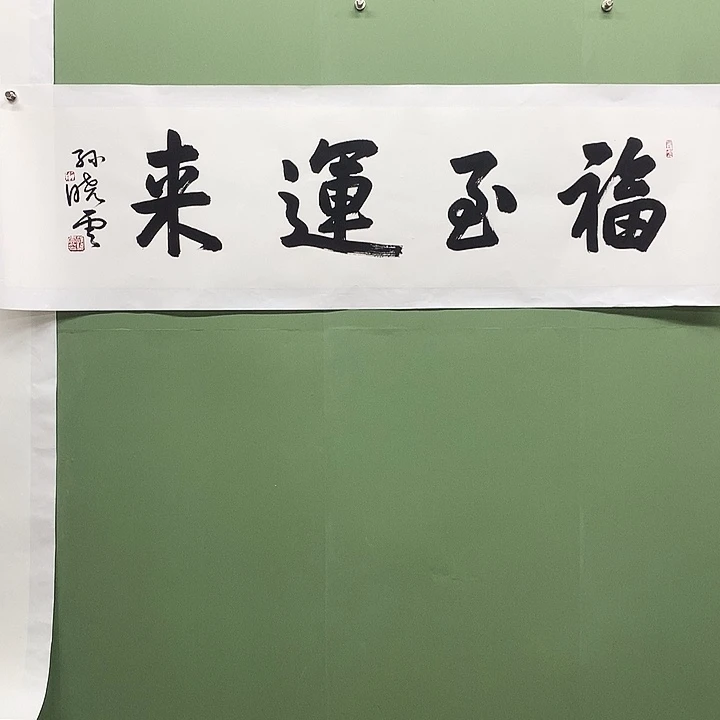 福至運来
孙晓云